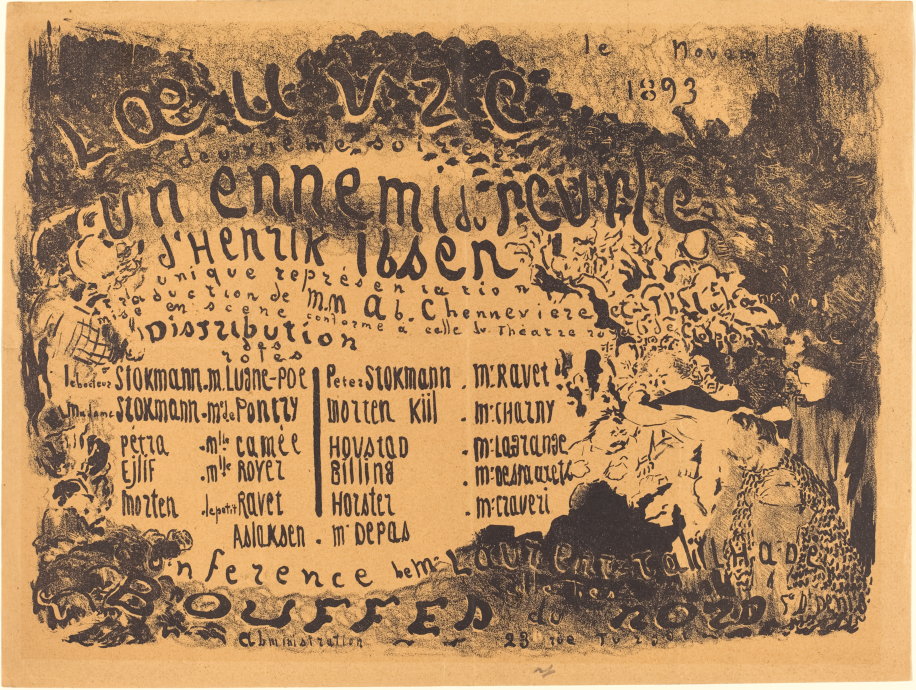 le Novem
1893
L'œuvre
deuxième soirée
un ennemi du peuple
d'Henrik Ibsen
unique représentation
traduction de M.M Ab. Chenneviere et
mise en scène conforme à celle du Théatre
Distribution
des
rôles
le docteur Stokmann . m. Lugné-Poe
Peter Stokmann . mr Ravet
madame Stokmann . me de Pontry
Morten Kiil . mr Charny
petra . mlle camée
Hovstad . mr Lagrange
Ejlif . mlle Royer
Billing . mr
morten . le petit Ravet
Horster . mr Craveri
Aslaksen . mr Depas
conference de mr Laurent tailhade
Bouffes du nord
administration 23 rue Turgot